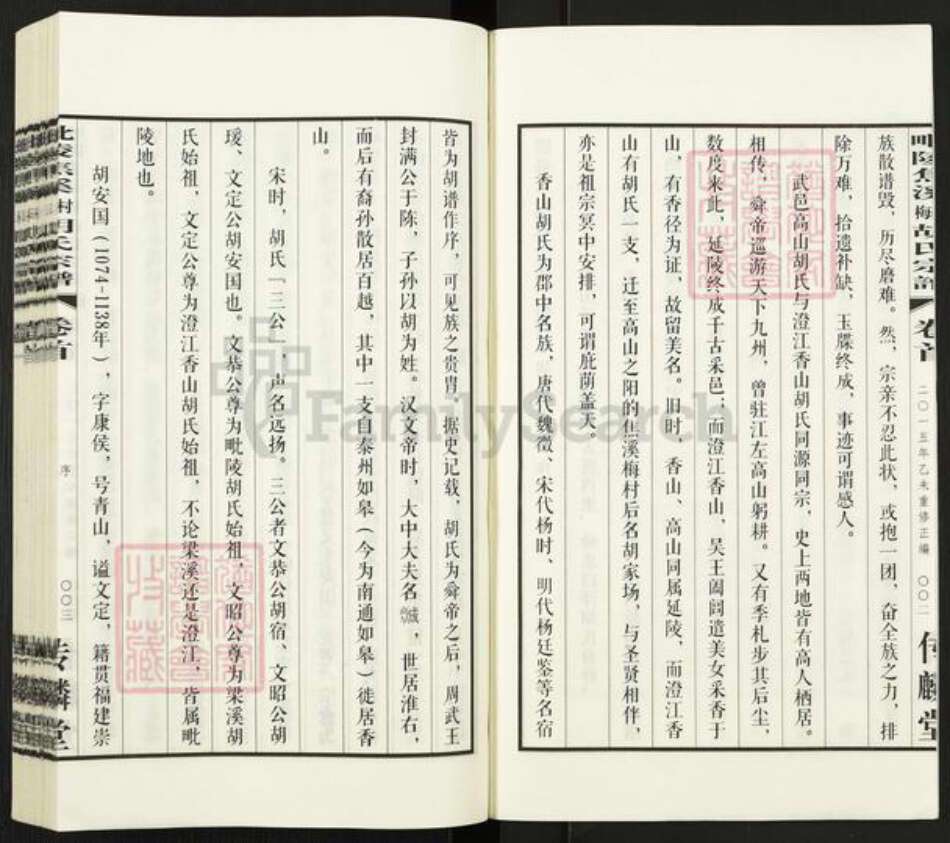 毗陵焦溪梅村胡氏宗谱
卷首
二〇一五年乙未重修正编
〇〇二
传麟堂
族散谱毁，历尽磨难。然，宗亲不忍此状，或抱一团，奋全族之力，排
除万难，拾遗补缺，玉牒终成，事迹可谓感人。
武邑高山胡氏与澄江香山胡氏同源同宗，史上两地皆有高人栖居。
相传，舜帝巡游天下九州，曾驻江左高山躬耕。又有季札步其后尘，
数度来此，延陵终成千古采邑；而澄江香山，吴王阖闾遣美女采香于
山，有香径为证，故留美名。旧时，香山、高山同属延陵，而澄江香
山有胡氏一支，迁至高山之阳的焦溪梅村后名胡家场，与圣贤相伴，
亦是祖宗冥中安排，可谓庇荫盖天。
香山胡氏为郡中名族，唐代魏徵、宋代杨时、明代杨廷鉴等名宿
皆为胡谱作序，可见族之贵胄。据史记载，胡氏为舜帝之后，周武王
封满公于陈，子孙以胡为姓。汉文帝时，大中大夫名諴，世居淮右，
而后有裔孙散居百越，其中一支自泰州如皋（今为南通如皋）徙居香
山。
宋时，胡氏「三公」，声名远扬。三公者文恭公胡宿、文昭公胡
瑗、文定公胡安国也。文恭公尊为毗陵胡氏始祖，文昭公尊为梁溪胡
氏始祖，文定公尊为澄江香山胡氏始祖，不论梁溪还是澄江，皆属毗
陵地也。
胡安国（1074-1138年），字康侯，号青山，谥文定，籍贯福建崇
卷首
序
〇〇三
FamilySearch